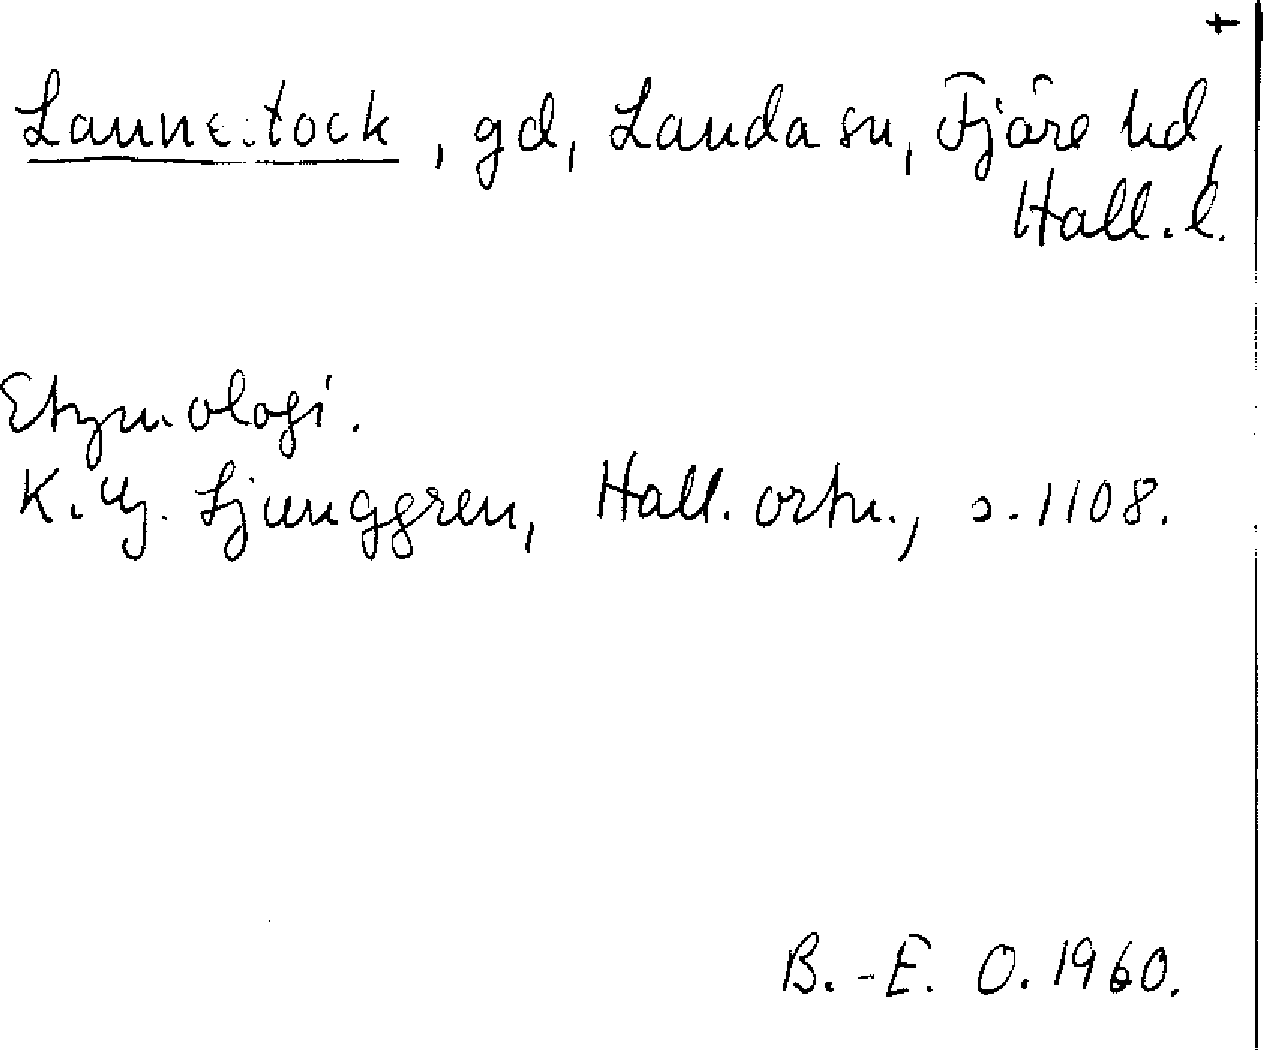 †
Lannestock, gd, Landa sn, Fjäre hd,
Hall. l.
Etymologi.
K. G. Ljunggren, Hall. ortn., s. 1108.
B.-E. O. 1960.